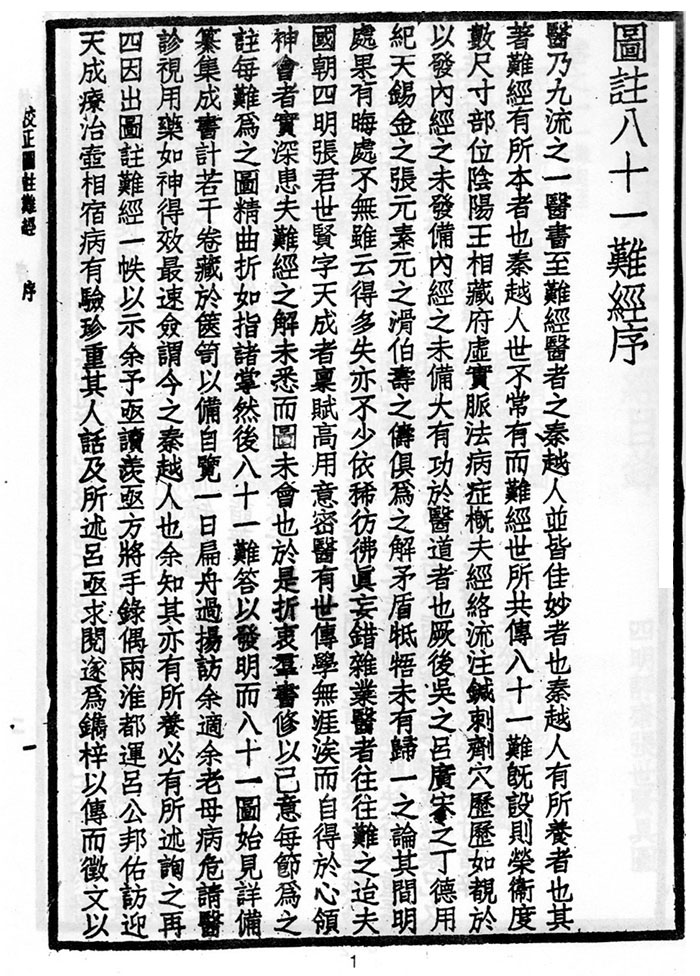 圖註八十一難經序
醫乃九流之一醫書至難經醫者之秦越人並皆佳妙者也秦越人有所養者也其
著難經有所本者也秦越人世不常有而難經世所共傳八十一難旣設則榮衞度
數尺寸部位陰陽王相藏府虛實脈法病症槪夫經絡流注鍼刺劑穴歷歷如覩於
以發內經之未發備內經之未備大有功於醫道者也厥後吳之呂廣宋之丁德用
紀天錫金之張元素元之滑伯壽之儔俱爲之解矛盾牴牾未有歸一之論其間明
處果有晦處不無雖云得多失亦不少依稀彷彿眞妄錯雜業醫者往往難之迨夫
國朝四明張君世賢字天成者稟賦高用意密醫有世傳學無涯涘而自得於心領
神會者實深患夫難經之解未悉而圖未會也於是折衷羣書修以己意每節爲之
註每難爲之圖精曲折如指諸掌然後八十一難答以發明而八十一圖始見詳備
纂集成書計若干卷藏於篋笥以備自覽一日扁舟過揚訪余適余老母病危請醫
診視用藥如神得效最速僉謂今之秦越人也余知其亦有所養必有所述詢之再
四因出圖註難經一帙以示余予亟讀羨亟方將手錄偶兩淮都運呂公邦佑訪迎
天成療治壺相宿病有驗珍重其人話及所述呂亟求閱遂爲鐫梓以傳而徵文以
校正圖註難經 序
1